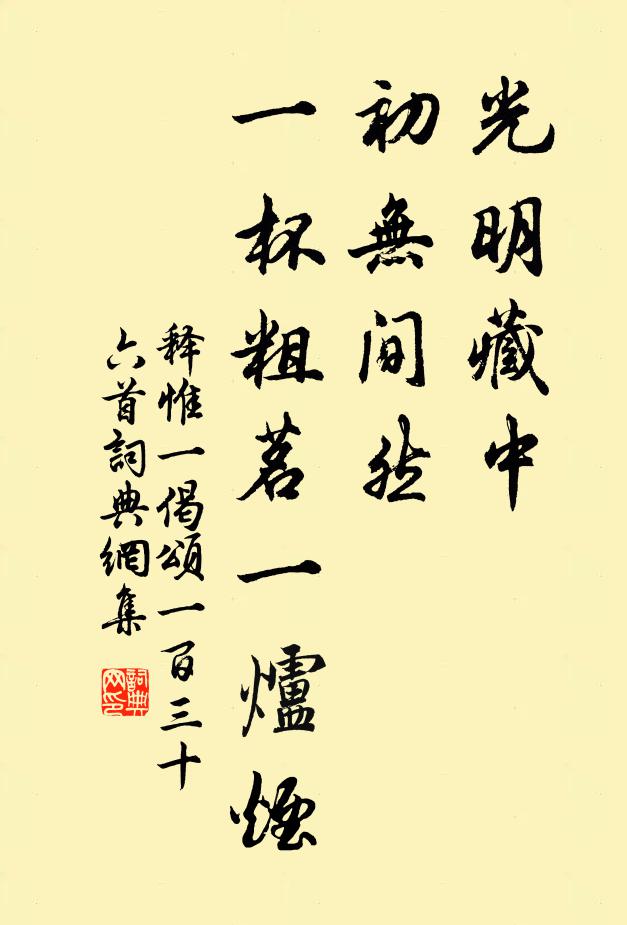 光明藏中
初無間然
一杯粗茗一爐煙
释惟一偈頌一百三十
六首詞典網集
詞典
网印